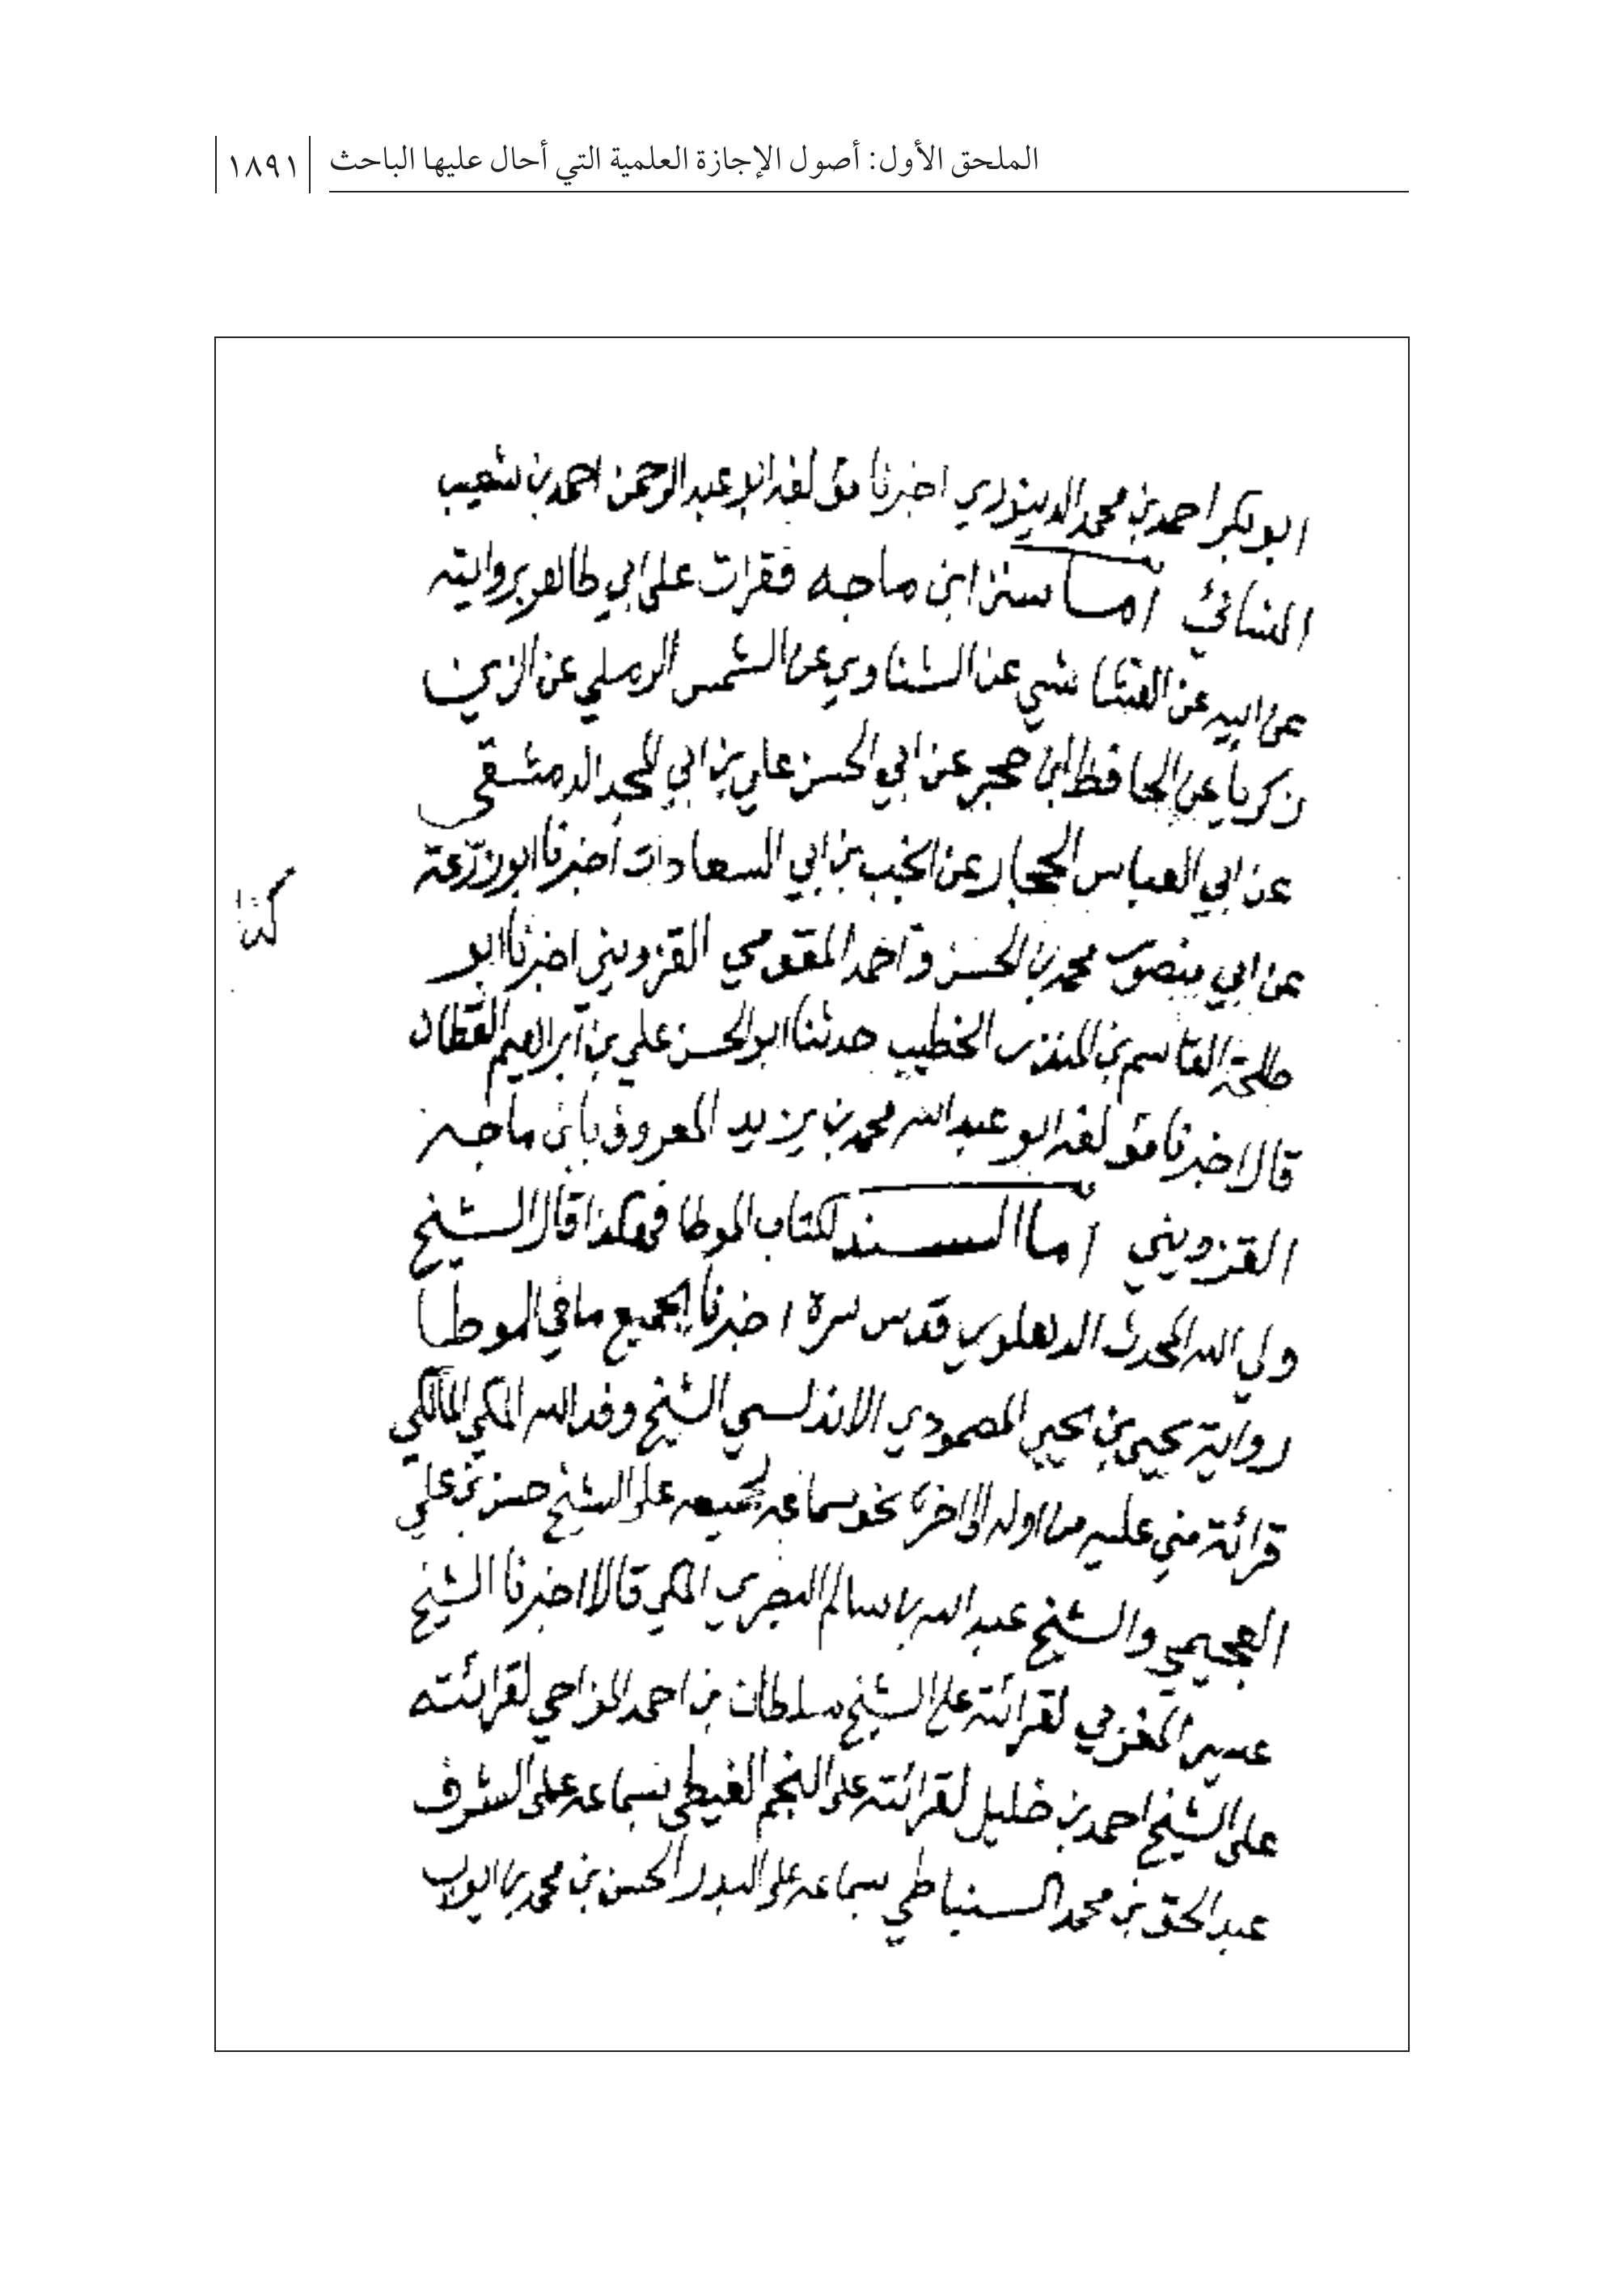 الملحق الأول: أصول الإجازة العلمية التي أحال عليها الباحث ١٨٩١
ابو بكر احمد بن محمد الدينوري اخبرنا مؤلفه ابو عبد الرحمن احمد بن شعيب
النسائي اما سنن ابن ماجه فقرات على ابي طاهر بروايته
عن ابيه عن القشاشي عن الشناوي عن الشمس الرملي عن الزين
زكريا عن الحافظ ابن حجر عن ابي الحسن علي بن ابي المجد الدمشقي
عن ابي العباس الحجار عن انجب بن ابي السعادات اخبرنا ابو زرعة
عن ابي منصور محمد بن الحسن و احمد المقومي القزويني اخبرنا ابو
طلحة القاسم بن المنذر الخطيب حدثنا ابو الحسن علي بن ابراهيم القطان
قال اخبرنا مؤلفه ابو عبد الله محمد بن يزيد المعروف بابن ماجه
القزويني اما السند لكتاب الموطا فهكذا قال الشيخ
ولي الله المحدث الدهلوي قدس سره اخبرنا بجميع ما في الموطا
رواية يحيى بن يحيى المصمودي الاندلسي الشيخ وفد الله المكي المالكي
قرائة مني عليه من اوله الى اخره بحق سماعه لجميعه على الشيخ حسن بن علي
العجيمي والشيخ عبد الله بن سالم البصري المكي قالا اخبرنا الشيخ
عيسى المغربي لقرائته على الشيخ سلطان بن احمد المزاحي لقرائته
على الشيخ احمد بن خليل لقرائته على النجم الغيطي بسماعه على الشرف
عبد الحق بن محمد السنباطي بسماعه على البدر الحسن بن محمد بن ايوب